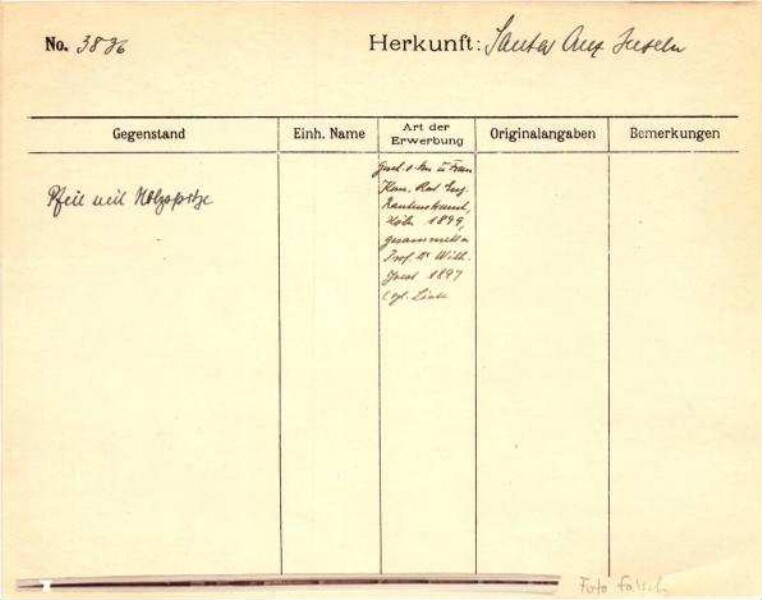 No. 3876
Herkunft: Santa Cruz Inseln
Gegenstand
Einh. Name
Art der
Erwerbung
Originalangaben
Bemerkungen
Pfeil mit Holzspitze
Gesch. v. Frau
Kom. Rat Eug.
Rautenstrauch,
Köln 1899,
gesammelt v.
Prof. Dr. Wilh.
Joest 1897
Liste
Foto falsch